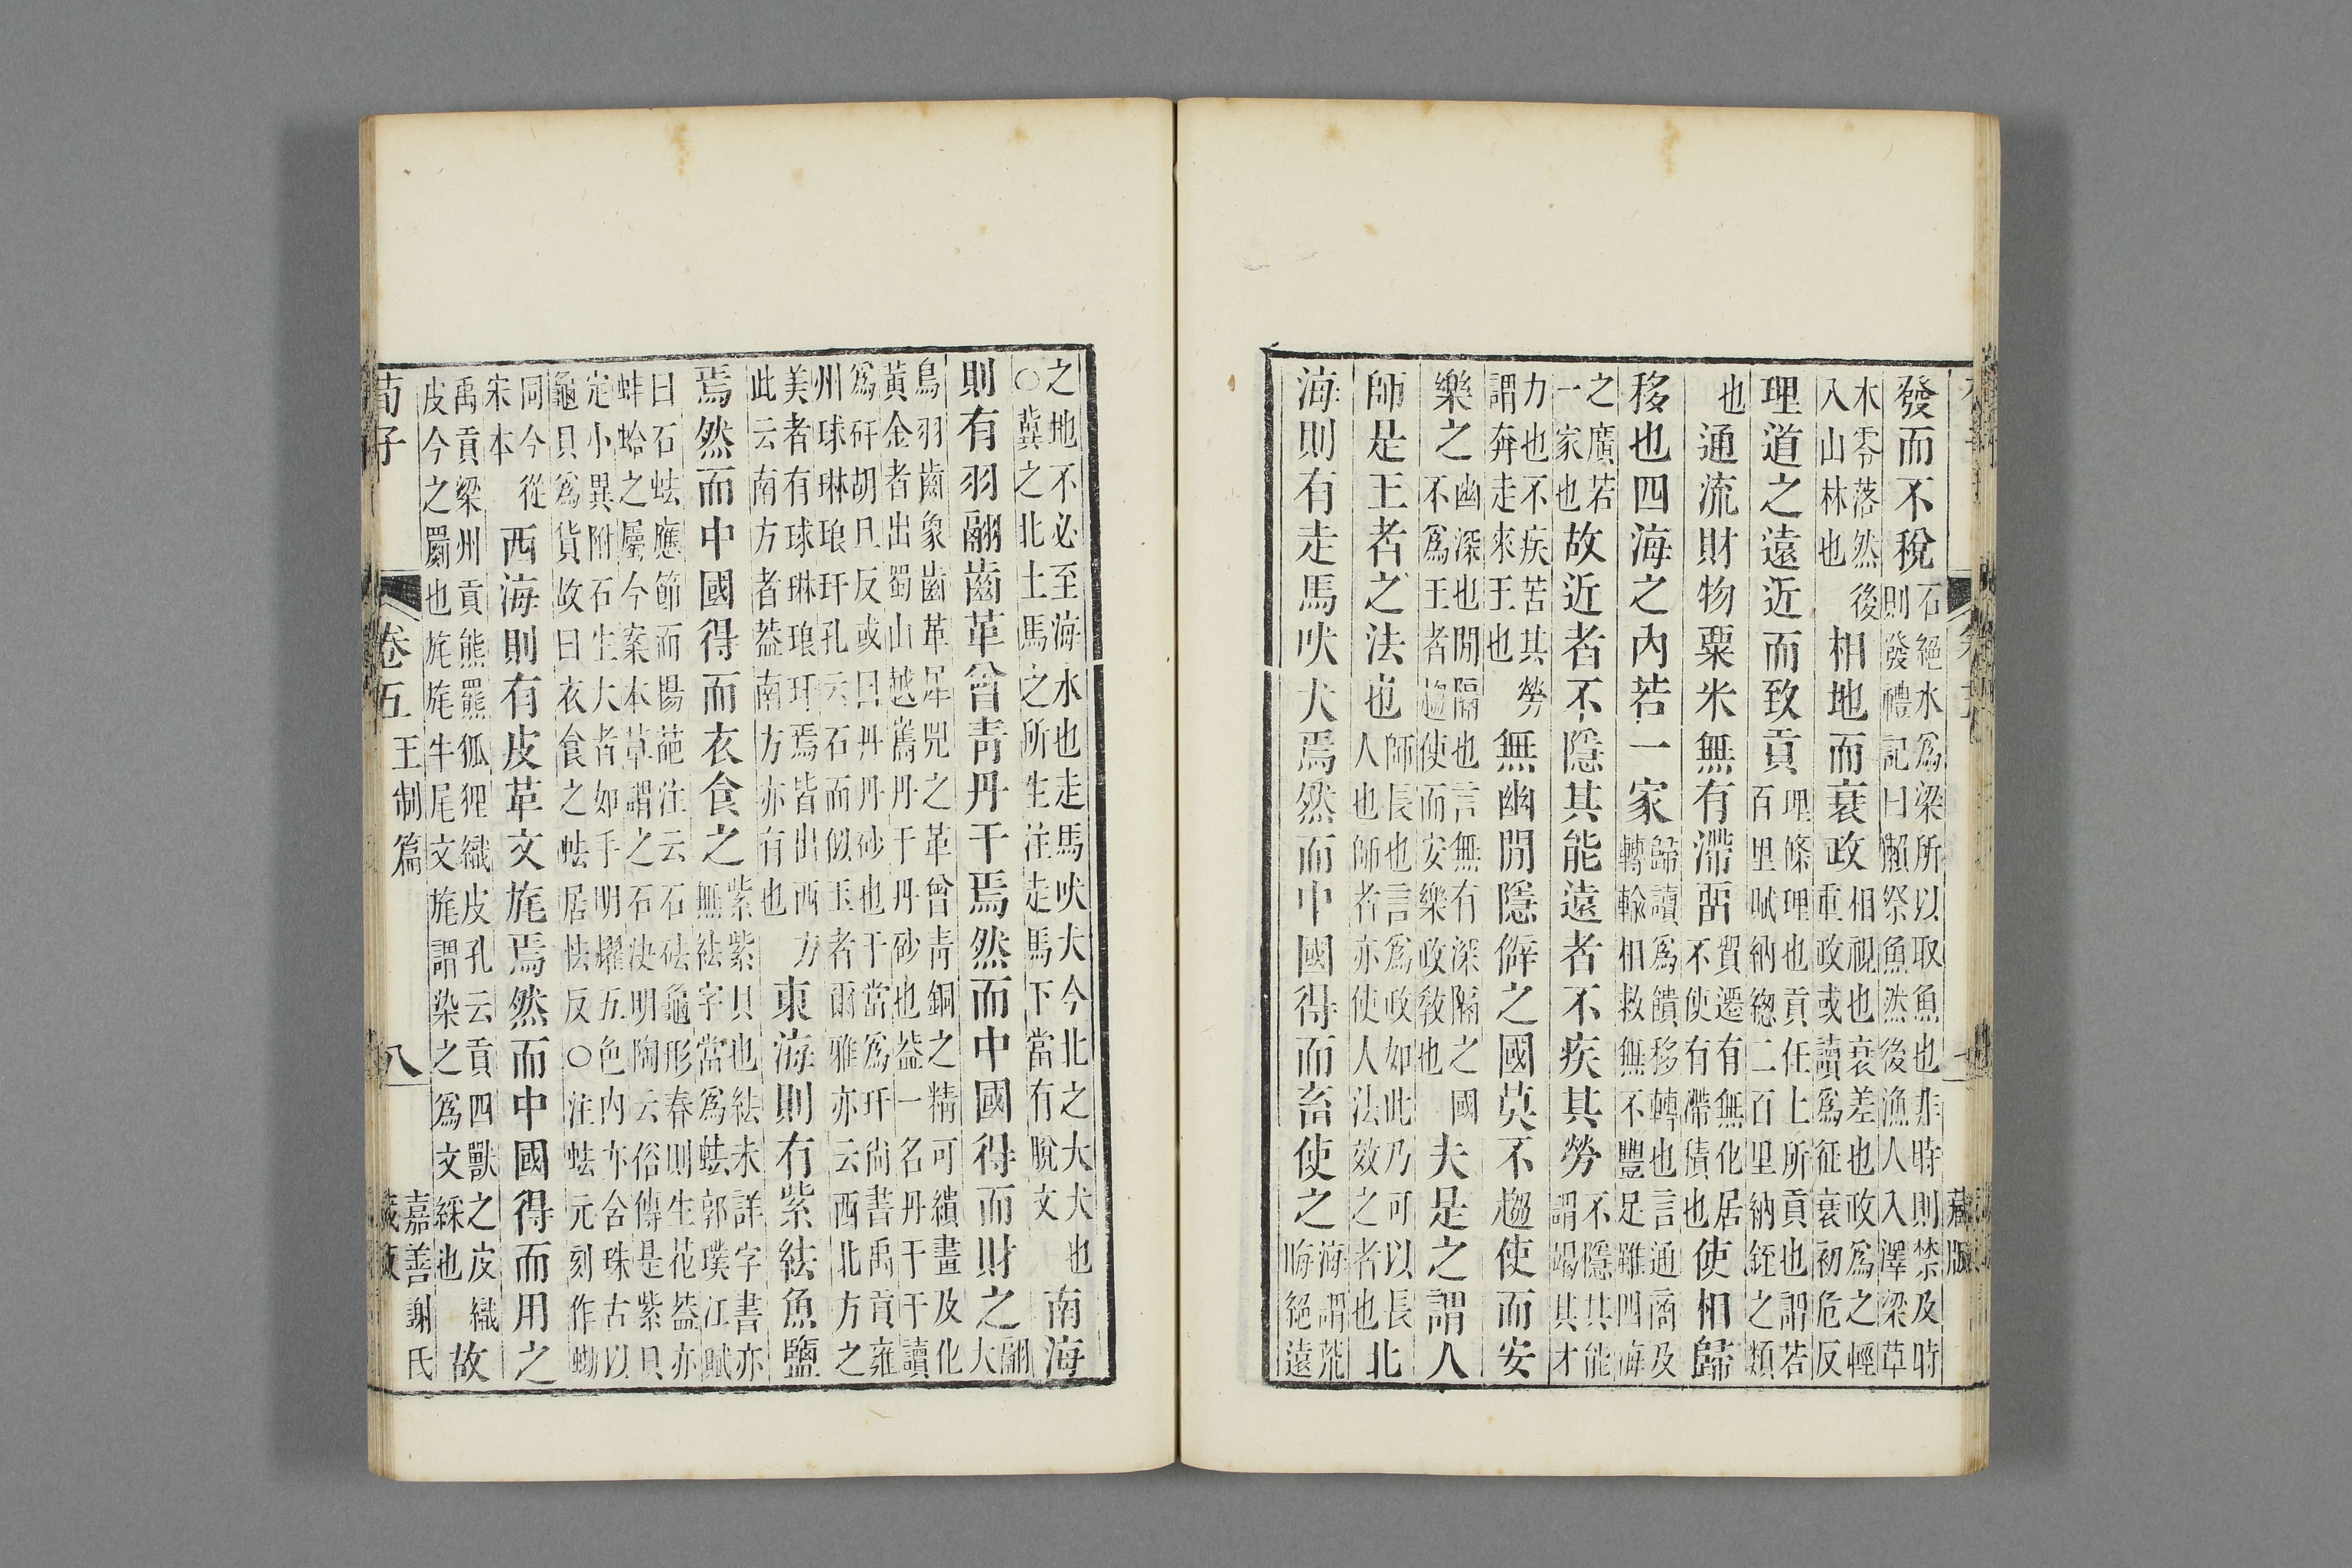 發而不稅石絕水爲梁所以取魚也非時則禁及時則發禮記曰獺祭魚然後漁人入澤梁草
木零落然後入山林也相地而衰政相視也衰差也政爲之輕重政或讀爲征衰初危反
理道之遠近而致貢理條理也貢任土所貢也謂若百里賦納總二百里納銍之類
也通流財物粟米無有滯留貿遷有無化居不使有滯積也使相歸
移也四海之內若一家歸讀爲饋移轉也言通商及轉輸相救無不豐足雖四海
之廣若一家也故近者不隱其能遠者不疾其勞不隱其能謂竭其才
力也不疾苦其勞謂奔走來王也無幽閒隱僻之國莫不趨使而安
樂之幽深也閒隔也言無有深隔之國不爲王者趨使而安樂政敎也夫是之謂人
師是王者之法也師長也言爲政如此乃可以長人也師者亦使人人法效之者也北
海則有走馬吠犬焉然而中國得而畜使之海謂荒晦絕遠
之地不必至海水也走馬吠犬今北之大犬也○冀之北土馬之所生注走馬下當有脫文南海
則有羽翮齒革曾青丹干焉然而中國得而財之翮大
鳥羽齒象齒革犀兕之革曾青銅之精可繢畫及化黃金者出蜀山越嶲丹干丹砂也葢一名丹干干讀
爲矸胡旦反或曰丹丹砂也干當爲玕尙書禹貢雍州球琳琅玕孔云石而似玉者爾雅亦云西北方之
美者有球琳琅玕焉皆出西方此云南方者葢南方亦有也東海則有紫紶魚鹽
焉然而中國得而衣食之紫紫貝也紶未詳字書亦無紶字當爲𧉧郭璞江賦
曰石𧉧應節而揚葩注云石𧉧龜形春則生花葢亦蚌蛤之屬今案本草謂之石決明陶云俗傳是紫貝
定小異附石生大者如手明耀五色內亦含珠古以龜貝爲貨故曰衣食之𧉧居怯反○注𧉧元刻作蚴
同今從宋本西海則有皮革文旄焉然而中國得而用之
禹貢梁州貢熊羆狐狸織皮孔云貢四獸之皮織皮今之罽也旄旄牛尾文旄謂染之爲文綵也故
荀子 卷五 王制篇 八 嘉善謝氏藏版